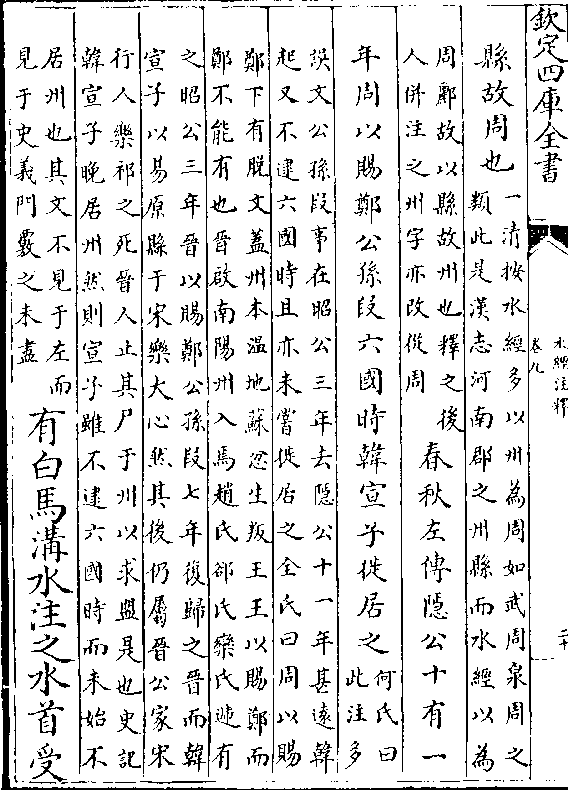 欽定四庫全書
水經注釋
卷九
二十
縣故周也
一清按水經多以州為周如武周泉周之
類此是漢志河南郡之州縣而水經以為
周郿故以縣故州也釋之後
人併注之州字亦改從周
春秋左傳隱公十有一
年周以賜鄭公孫段六國時韓宣子徙居之
何氏曰
此注多
誤文公孫段事在昭公三年去隱公十一年甚遠韓
起又不逮六國時且亦未嘗徙居之全氏曰周以賜
鄭下有脫文蓋州本溫地蘇忿生叛王王以賜鄭而
鄭不能有也晉啟南陽州入馬趙氏郤氏欒氏遞有
之昭公三年晉以賜鄭公孫段七年復歸之晉而韓
宣子以易原縣于宋樂大心然其後仍屬晉公家宋
行人樂祁之死晉人止其尸于州以求盟是也史記
韓宣子晚居州然則宣子雖不逮六國時而未始不
居州也其文不見于左而
見于史義門覈之未盡
有白馬溝水注之水首受